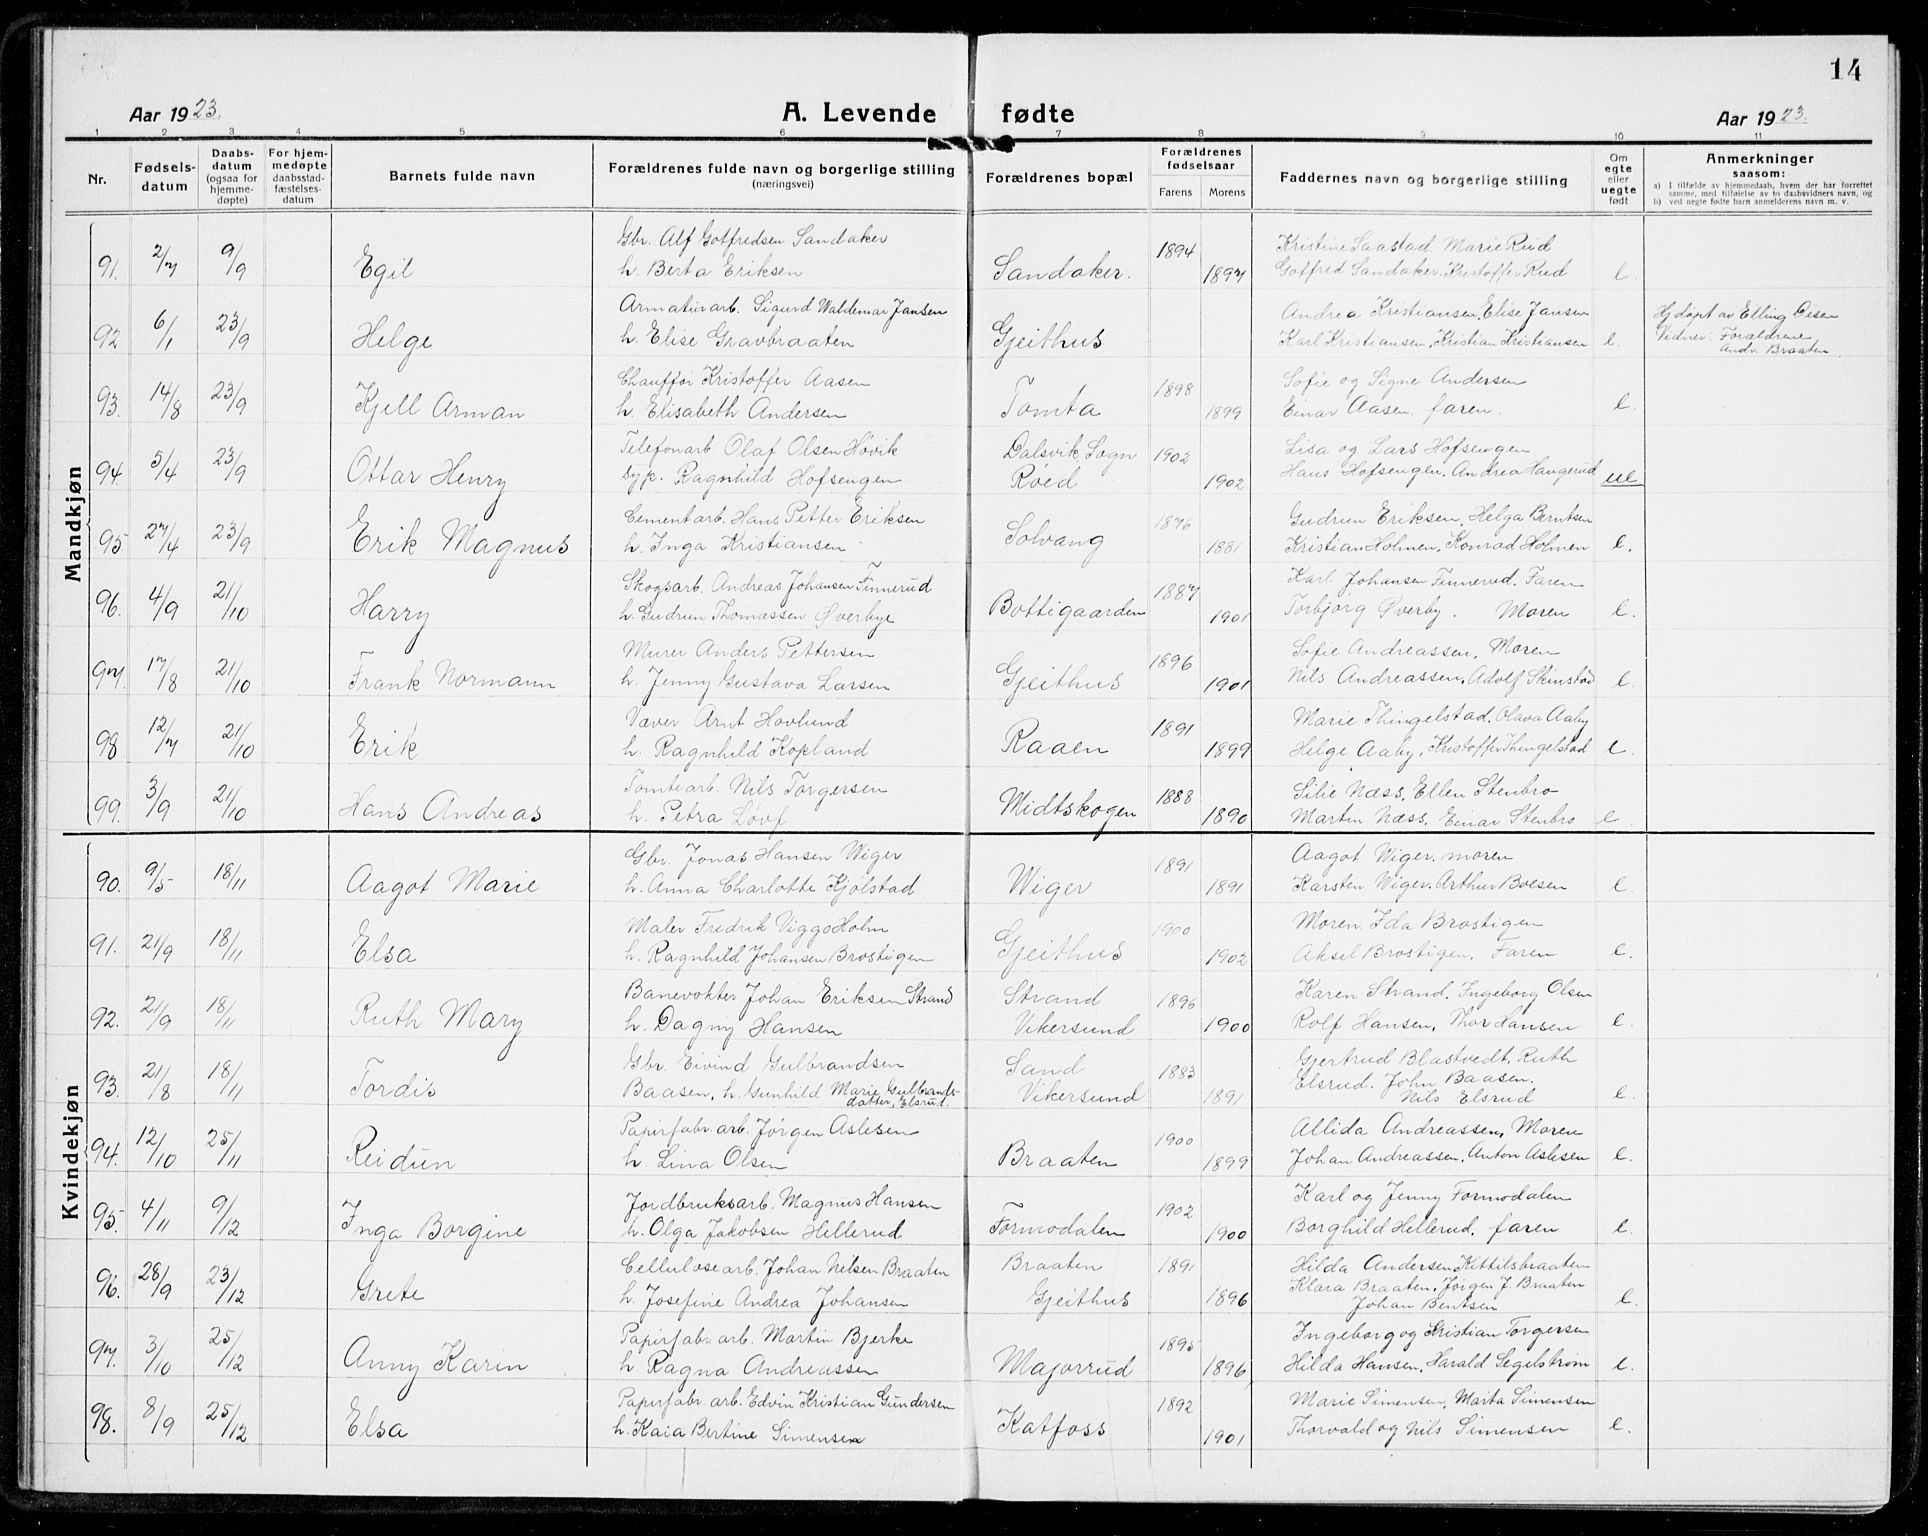 14
Aar 1923. A. Levende fødte Aar 1923.
1 2 3 4 5 6 7 8 9 10 11
Nr. Fødsels-datum Daabs-datum (ogsaa for hjemme-døpte) For hjem-medøpte daabsstad-fæstelses-datum Barnets fulde navn Forældrenes fulde navn og borgerlige stilling (næringsvei) Forældrenes bopæl Forældrenes fødselsaar Farens Morens Faddernes navn og borgerlige stilling Om egte eller uegte født Anmerkninger saasom:
a) I tilfælde av hjemmedaab, hvem der har forrettet samme, med tilføielse av to daabsvidners navn, og
b) ved uegte fødte barn anmelderens navn m. v.
Mandkjøn
Gbr. Alf Gotfredsen Sandaker 1894 Kristine Saastad, Marie Rud
91. 2/7 9/9 Egil h. Berta Eriksen Sandaker. 1897 Gotfred Sandaker. Kristoffer Rud e.
Armaturarb. Sigurd Waldemar Jansen Andrea Kristiansen, Elise Jansen Hjdøpt av Elling Olsen
92 6/1 23/9 Helge h. Elise Gravbraaten Gjeithus Karl Kristiansen, Kristian Kristiansen e. Vidner: Forældrene
Andr. Braaten.
Chauffør Kristoffer Aasen 1898 Sofie og Signe Andersen
93. 14/8 23/9 Kjell Arman h. Elisabeth Andersen Tomta 1899 Einar Aasen. faren. e.
Telefonarb. Olaf Olsen Høvik Dalsvik Sogn 1902 Lisa og Lars Hofsengen
94. 5/4 23/9 Ottar Henry syp. Ragnhild Hofsengen Røed 1902 Hans Hofsengen. Andrea Haugerud ue
Cementarb. Hans Petter Eriksen 1876 Gudrun Eriksen, Helga Berntsen
95 27/4 23/9 Erik Magnus h. Inga Kristiansen Solvang 1881 Kristian Holmen, Konrad Holmen e.
Skogsarb. Andreas Johansen Finnerud 1887 Karl Johansen Finnerud. Faren
96. 4/9 21/10 Harry h. Gudrun Thomassen Øverbye Bottigaarden 1901 Torbjørg Øverby. Moren e.
Murer Anders Pettersen 1896 Sofie Andreassen, Moren
97. 17/8 21/10 Frank Normann h. Jenny Gustava Larsen Gjeithus 1901 Nils Andreassen, Adolf Skinstad e.
Væver Arnt Hovlund 1891 Marie Thingelstad, Olava Aaby
98 12/7 21/10 Erik h. Ragnhild Kopland Raaen 1899 Helge Aaby, Kristoffer Thingelstad e.
Tomtearb. Nils Torgersen 1888 Silie Næss, Ellen Stenbro
99. 3/9 21/10 Hans Andreas h. Petra Løvf Midtskogen 1890 Martin Næss, Einar Stenbro e.
Kvindekjøn
Gbr. Jonas Hansen Wiger 1891 Aagot Wiger. moren
90. 9/5 18/11 Aagot Marie h. Anna Charlotte Kjølstad Wiger 1891 Karsten Wiger. Arthur Boesen e.
Maler Fredrik Viggo Holm 1900 Moren. Ida Brostigen
91. 21/9 18/11 Elsa h. Ragnhild Johansen Brostigen Gjeithus 1902 Aksel Brostigen, Faren e.
Banevokter Johan Eriksen Strand Strand 1896 Karen Strand, Ingeborg Olsen
92. 21/9 18/11 Ruth Mary h. Dagny Hansen Vikersund 1900 Rolf Hansen, Thor Hansen e.
Gbr. Eivind Gulbrandsen Sand 1883 Gjertrud Blastvedt, Ruth
93. 21/8 18/11 Tordis Baasen, h. Gunhild Marie Gulbrands-datter, Elsrud. Vikersund 1891 Elsrud. John Baasen.
Nils Elsrud e.
Papirfabr. arb. Jørgen Aslesen 1900 Allida Andreassen, Moren
94. 12/10 25/11 Reidun h. Lina Olsen Braaten 1899 Johan Andreassen, Anton Aslesen e.
Jordbruksarb. Magnus Hansen 1902 Karl og Jenny Formodalen
95. 4/11 9/12 Inga Borgine h. Olga Jakobsen Hellerud Formodalen 1900 Borghild Hellerud, faren e.
Cellulosearb. Johan Nilsen Braaten Braaten 1891 Hilda Andersen Kittilsbraaten
96. 28/9 23/12 Grete h. Josefine Andrea Johansen Gjeithus 1896 Klara Braaten, Jørgen J. Braaten
Johan Bentsen e.
Papirfabr. arb. Martin Bjerke 1895 Ingeborg og Kristian Torgersen
97. 3/10 25/12 Anny Karin h. Ragna Andreassen Majorrud 1896 Hilda Hansen, Harald Segelstrøm e.
Papirfabr. arb. Edvin Kristian Gundersen 1892 Marie Simensen, Marta Simensen
98. 8/9 25/12 Elsa h. Kaia Bertine Simensen Katfoss 1901 Thorvald og Nils Simensen e.